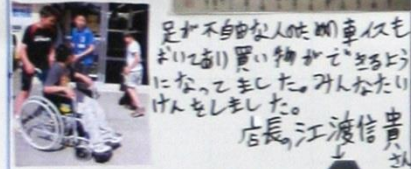 足が不自由な人のための車イスも
おいてあり買い物ができるよう
になってました。みんなたい
けんをしました。
店長の江渡信貴
さん